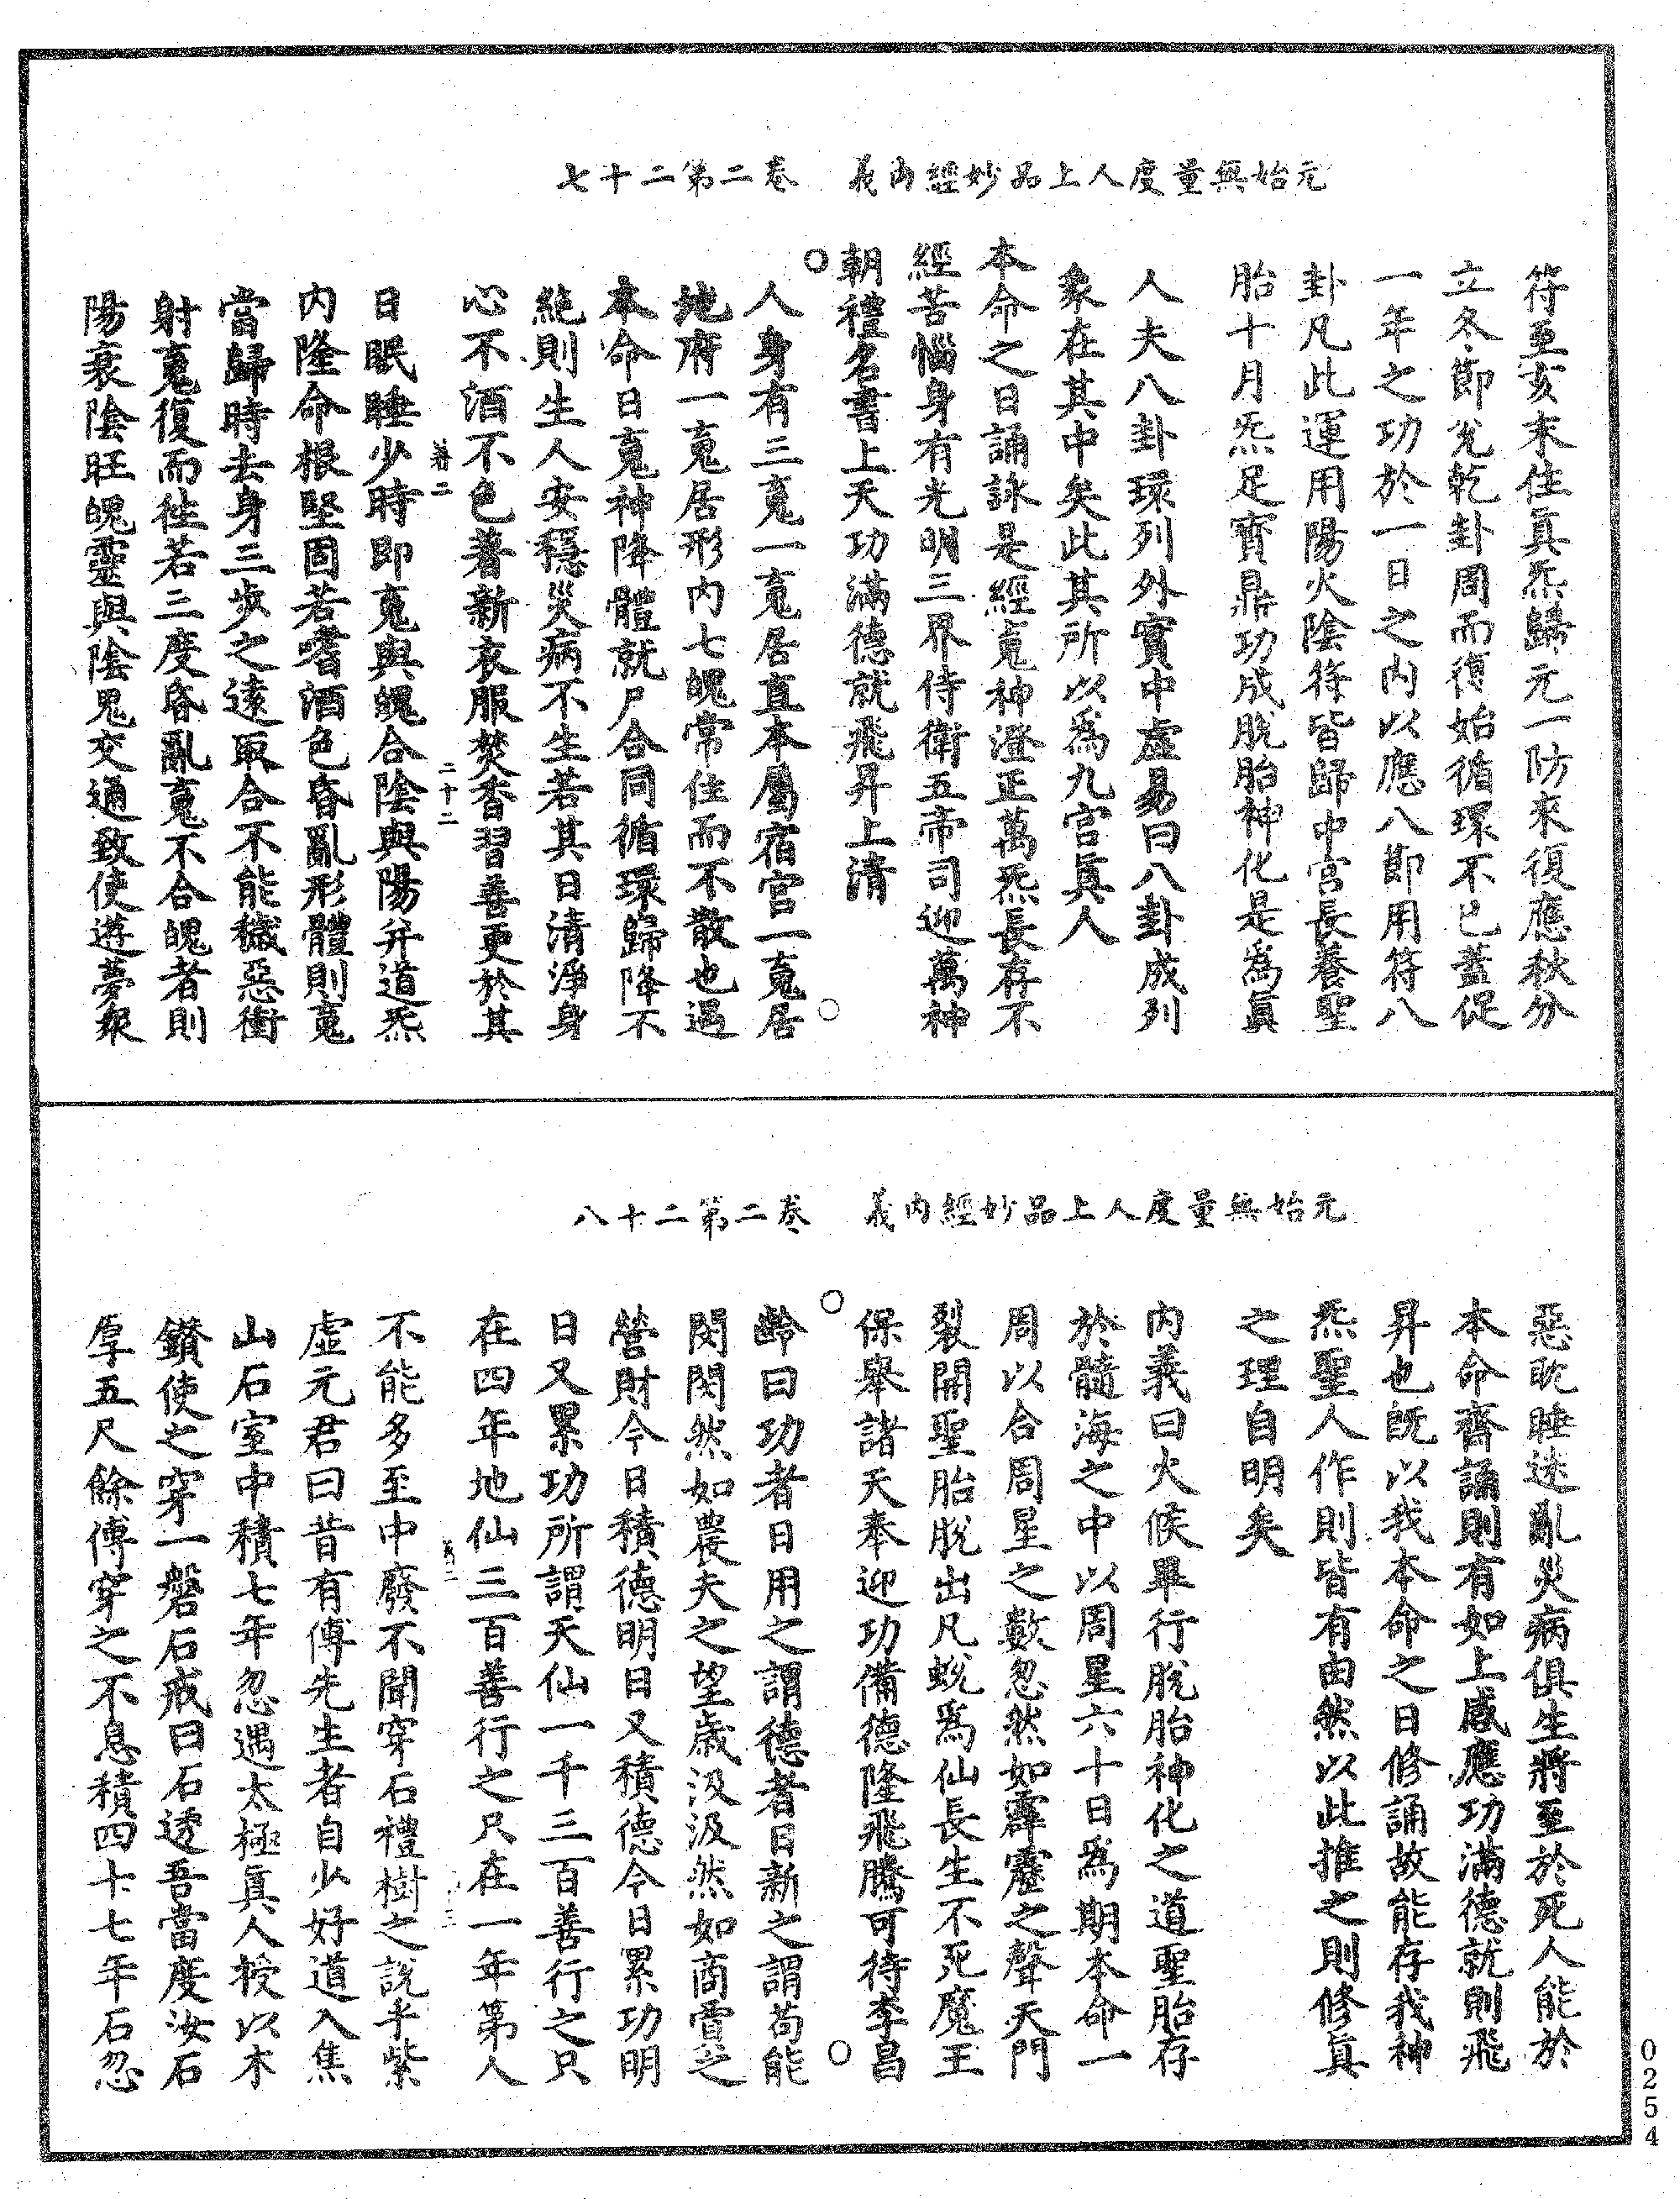 元始無量度人上品妙經內義　卷二第二十七
符至亥末住眞炁歸元一防來復應秋分
立冬節兌乾卦周而復始循環不已蓋促
一年之功於一日之內以應八節用符八
卦凡此運用陽火陰符皆歸中宮長養聖
胎十月炁足寶鼎功成脫胎神化是爲眞
人夫八卦環列外實中虛易曰八卦成列
象在其中矣此其所以爲九宮眞人
本命之日誦詠是經䰟神澄正萬炁長存不
經苦惱身有光明三界侍衛五帝司迎萬神
朝禮名書上天功滿德就飛昇上清
人身有三䰟一䰟居直本屬宿宮一䰟居
地府一䰟居形內七魄常住而不散也遇
本命日䰟神降體就尸合同循環歸降不
絶則生人安穩災病不生若其日清淨身
心不酒不色著新衣服焚香習善更於其
日眠睡少時即䰟與魄合陰與陽并道炁
卷二
二十二
內隆命根堅固若嗜酒色昏亂形體則䰟
當歸時去身三步之遠取合不能穢惡衝
射䰟復而徃若三度昏亂䰟不合魄者則
陽衰陰旺魄靈與陰鬼交通致使遊夢衆
元始無量度人上品妙經內義　卷二第二十八
惡眈睡迷亂災病俱生將至於死人能於
本命齊誦則有如上感應功滿德就則飛
昇也既以我本命之日修誦故能存我神
炁聖人作則皆有由然以此推之則修眞
之理自明矣
內義曰火候畢行脫胎神化之道聖胎存
於髓海之中以周星六十日爲期本命一
周以合周星之數忽然如霹靂之聲天門
裂開聖胎脫出凡蛻爲仙長生不死魔王
保舉諸天奉迎功備德隆飛騰可待李昌
齡曰功者日用之謂德者日新之謂苟能
閔閔然如農夫之望歲汲汲然如商賈之
營財今日積德明日又積德今日累功明
日又累功所謂天仙一千三百善行之只
在四年地仙三百善行之只在一年第人
不能多至中廢不聞穿石禮樹之說乎紫
虛元君曰昔有傅先生者自少好道入焦
山石室中積七年忽遇太極眞人授以木
鑽使之穿一磐石戒曰石透吾當度汝石
厚五尺餘傅穿之不息積四十七年石忽
0254